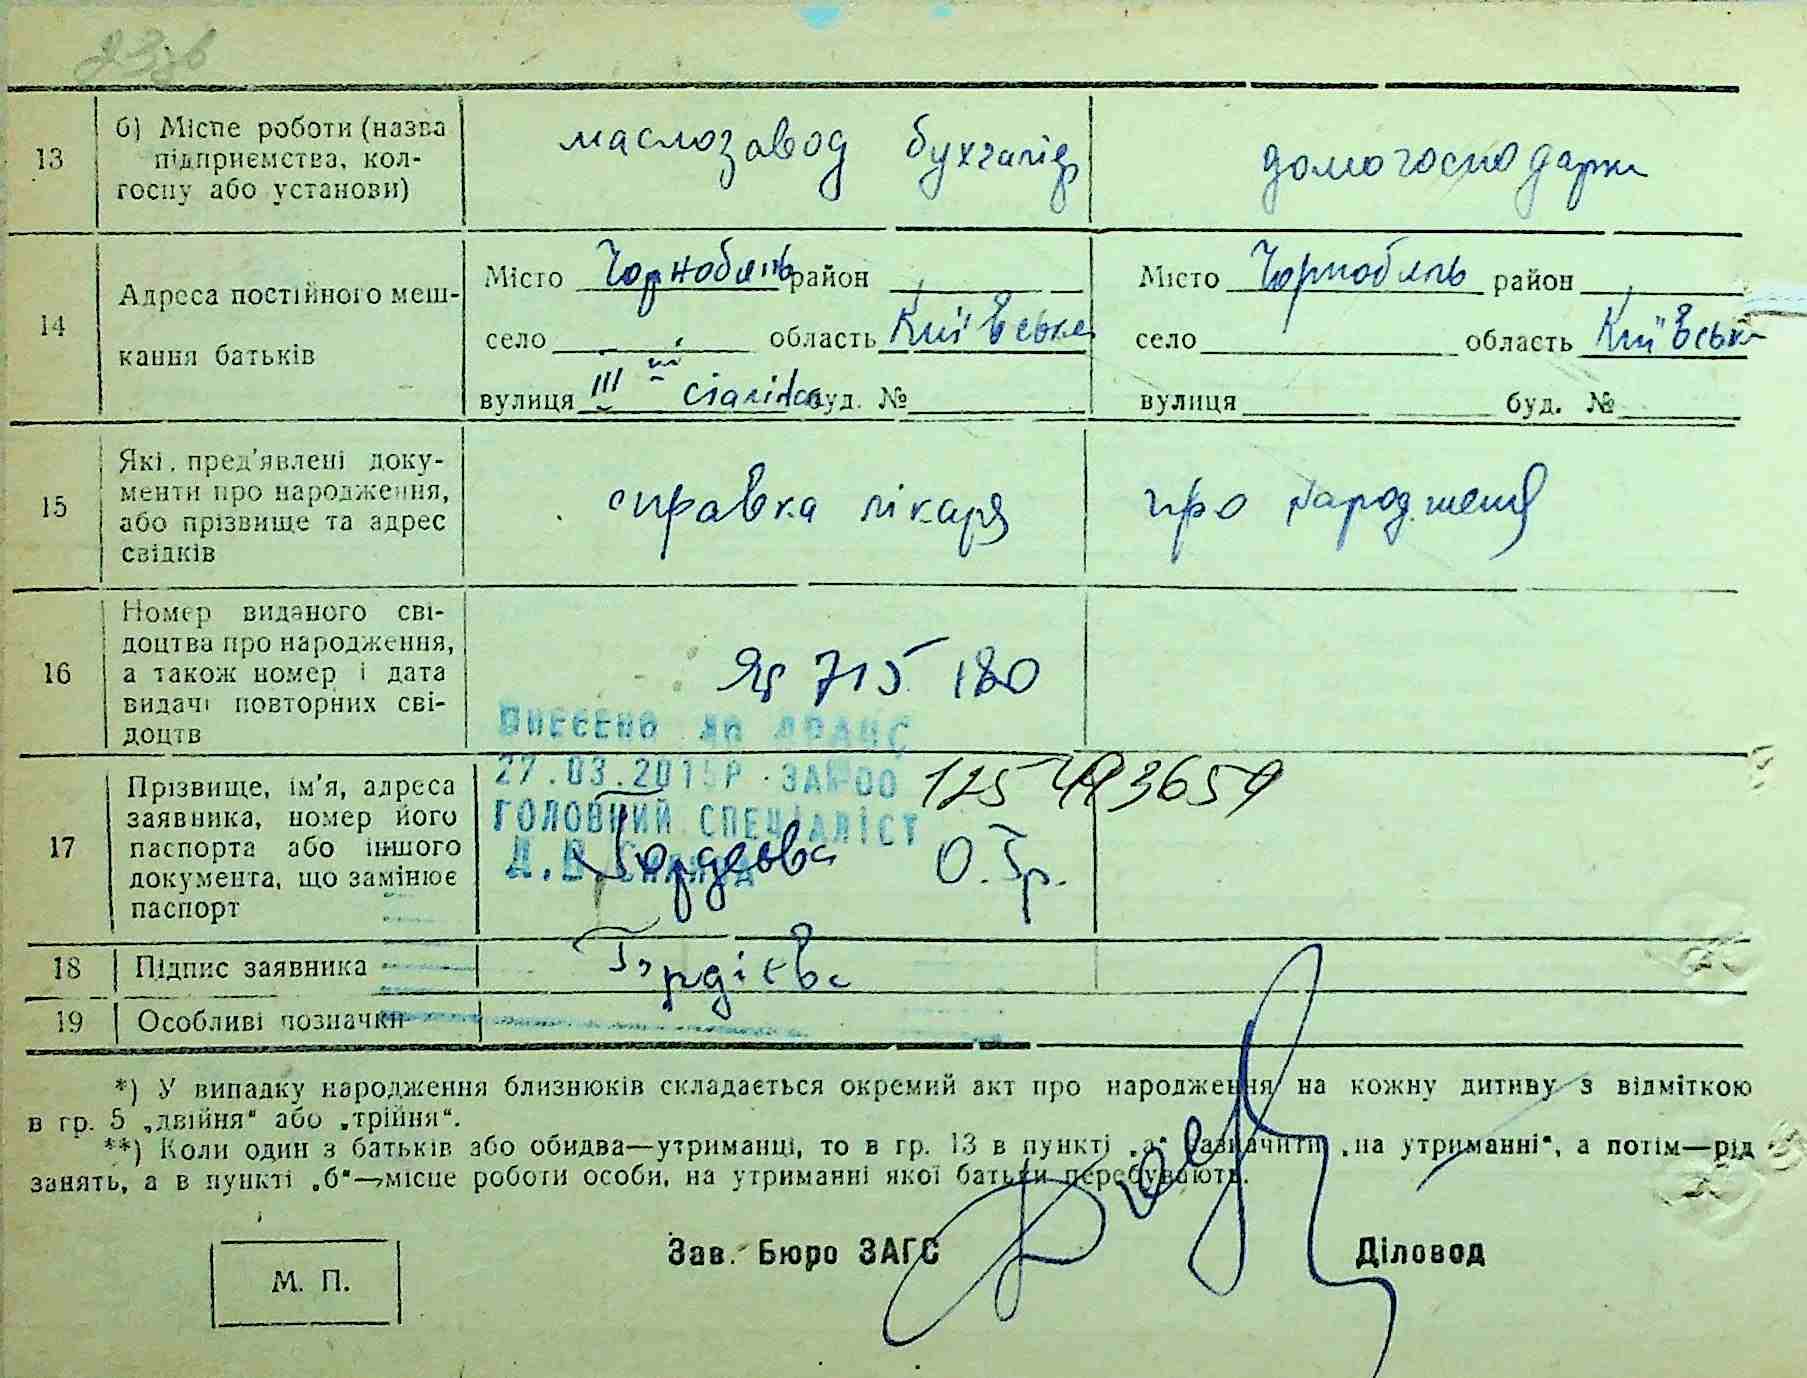 13
б) Місце роботи (назва
підприємства, кол-
госпу або установи)
маслозавод бухгалтер
домогосподарка
14
Адреса постійного меш-
кання батьків
Місто Чорнобиль район
село область Київська
вулиця ІІІ буд. №
Місто Чорнобиль район
село область Київська
вулиця буд. №
15
Які пред'явлені доку-
менти про народження,
або прізвище та адрес
свідків
справка лікаря про народження
16
Номер виданого сві-
доцтва про народження,
а також номер і дата
видачі повторних сві-
доцтв
715180
ВНЕСЕНО ДО ДРАЦС
27.03.2015Р ЗА№00 1254493659
ГОЛОВНИЙ СПЕЦІАЛІСТ
17
Прізвище, ім'я, адреса
заявника, номер його
паспорта або іншого
документа, що замінює
паспорт
Гордеєва О. Гр.
18
Підпис заявника
Гордієва
19
Особливі позначки
*) У випадку народження близнюків складається окремий акт про народження на кожну дитину з відміткою
в гр. 5 „двійня“ або „трійня“.
**) Коли один з батьків або обидва—утриманці, то в гр. 13 в пункті „а“ зазначити „на утриманні“, а потім—рід
занять, а в пункті „б“—місце роботи особи, на утриманні якої батьки перебувають.
М. П.
Зав. Бюро ЗАГС
Діловод